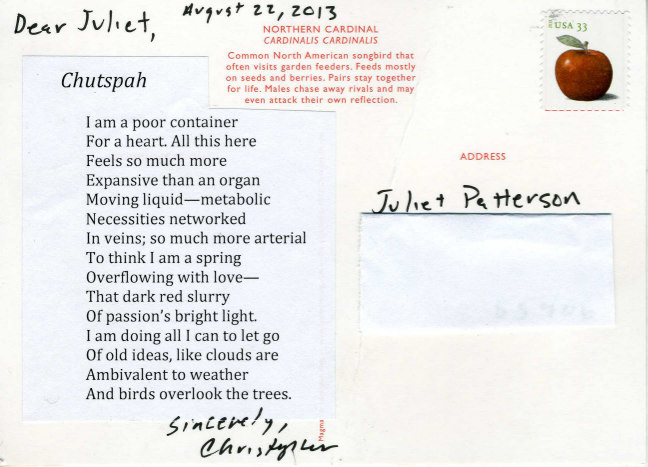 Dear Juliet,
August 22, 2013
NORTHERN CARDINAL
CARDINALIS CARDINALIS
Common North American songbird that
often visits garden feeders. Feeds mostly
on seeds and berries. Pairs stay together
for life. Males chase away rivals and may
even attack their own reflection.
USA 33
Chutspah
I am a poor container
For a heart. All this here
Feels so much more
Expansive than an organ
Moving liquid—metabolic
Necessities networked
In veins; so much more arterial
To think I am a spring
Overflowing with love—
That dark red slurry
Of passion's bright light.
I am doing all I can to let go
Of old ideas, like clouds are
Ambivalent to weather
And birds overlook the trees.
Sincerely,
Christopher
Magma
ADDRESS
Juliet Patterson